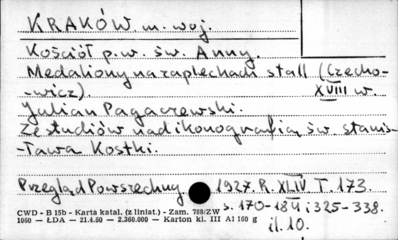 KRAKÓW. m. woj.
Kościół p.w. św. Anny.
Medaliony na zapleckach stall (Czecho-
-wicz). XVIII w.
Julian Pagaczewski.
Ze studiów nad ikonografią św. Stanis-
-ława Kostki.
Przegląd Powszechny 1927. R. XLIV. T. 173.
s. 170-184 i 325-338.
il. 10.
CWD - B 15b - Karta katal. (z liniat.) - Zam. 788/ZW
1060 — ŁDA — 21.4.60 — 2.360.000 — Karton kl. III A1 160 g